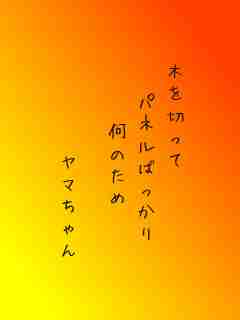 木を切って
パネルばっかり
何のため
ヤマちゃん